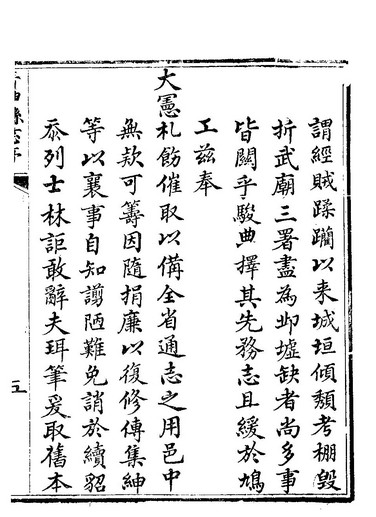 謂經賊蹂躪以来城垣傾頹考棚毀
折武廟三署盡為邱墟缺者尚多事
皆關乎駿典擇其先務志且緩於鳩
工茲奉
大憲札飭催取以備全省通志之用邑中
無款可籌因隨捐廉以復修傳集紳
等以襄事自知譾陋難免誚於續貂
忝列士林詎敢辭夫珥筆爰取舊本
縣志序
五